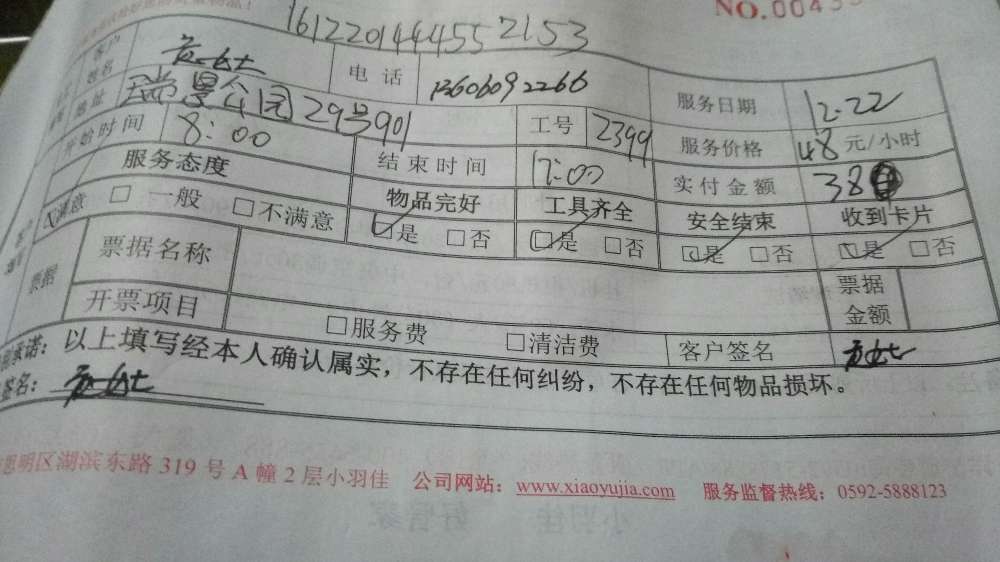 NO.00433
161220144455 2153
客户姓名 电话 13606092266 服务日期 12.22
地址 瑞景公园29号901 工号 2399 服务价格 48 元/小时
开始时间 8:00 结束时间 12:00 实付金额 38
服务态度 物品完好 工具齐全 安全结束 收到卡片
满意 □ 一般 □不满意 ☑是 □否 ☑是 □否 ☑是 □否 ☑是 □否
票据 票据名称 票据金额
开票项目 □服务费 □清洁费 客户签名
承诺：以上填写经本人确认属实，不存在任何纠纷，不存在任何物品损坏。
签名：
思明区湖滨东路 319 号 A 幢 2 层小羽佳 公司网站：www.xiaoyujia.com 服务监督热线：0592-5888123